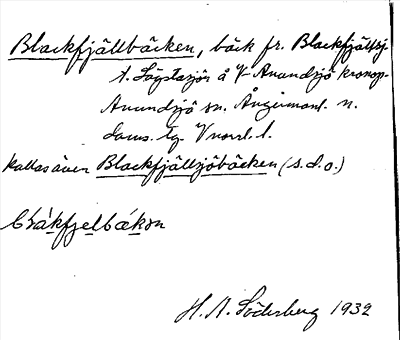 Blackfjällbäcken, bäck fr. Blackfjällsj.
t. Sågstasjön å V Anundsjö kronop.
Anundsjö sn. Ångermanl. n.
doms. tg. V norrl. l.
kallas även Blackfjällsjöbäcken (s.d.o.)
H. A. Söderberg 1932